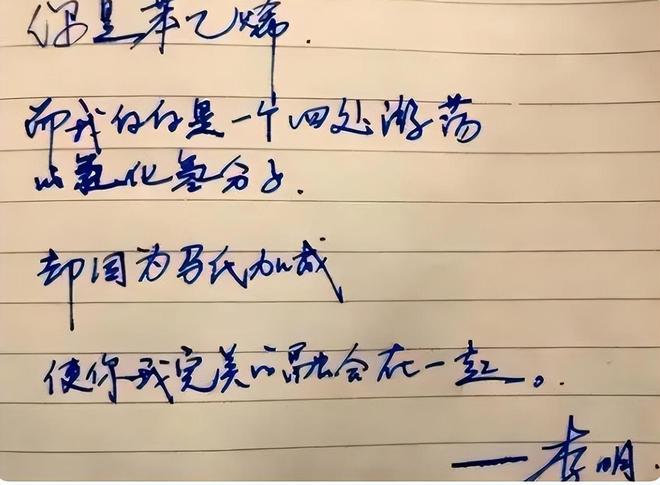 你是苯乙烯.
而我仅仅是一个四处游荡
的氯化氢分子.
却因为马氏加成
使你我完美的融合在一起。.
——李明.